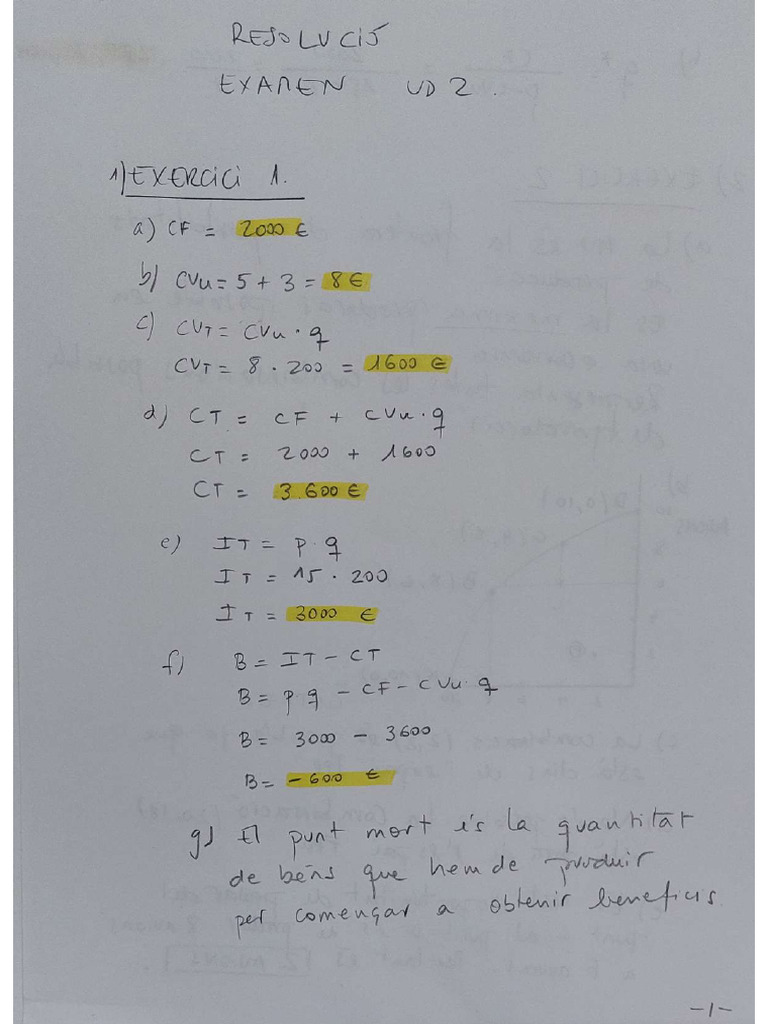 RESOLUCIÓ
EXAMEN UD 2.
1) EXERCICI 1.
a) CF = 2000 €
b) CVu = 5 + 3 = 8 €
c) CVT = CVu · q
CVT = 8 · 200 = 1600 €
d) CT = CF + CVu · q
CT = 2000 + 1600
CT = 3.600 €
e) IT = p · q
IT = 15 · 200
IT = 3000 €
f) B = IT - CT
B = p · q - CF - CVu · q
B = 3000 - 3600
B = -600 €
g) El punt mort és la quantitat
de béns que hem de produir
per començar a obtenir beneficis.
-1-